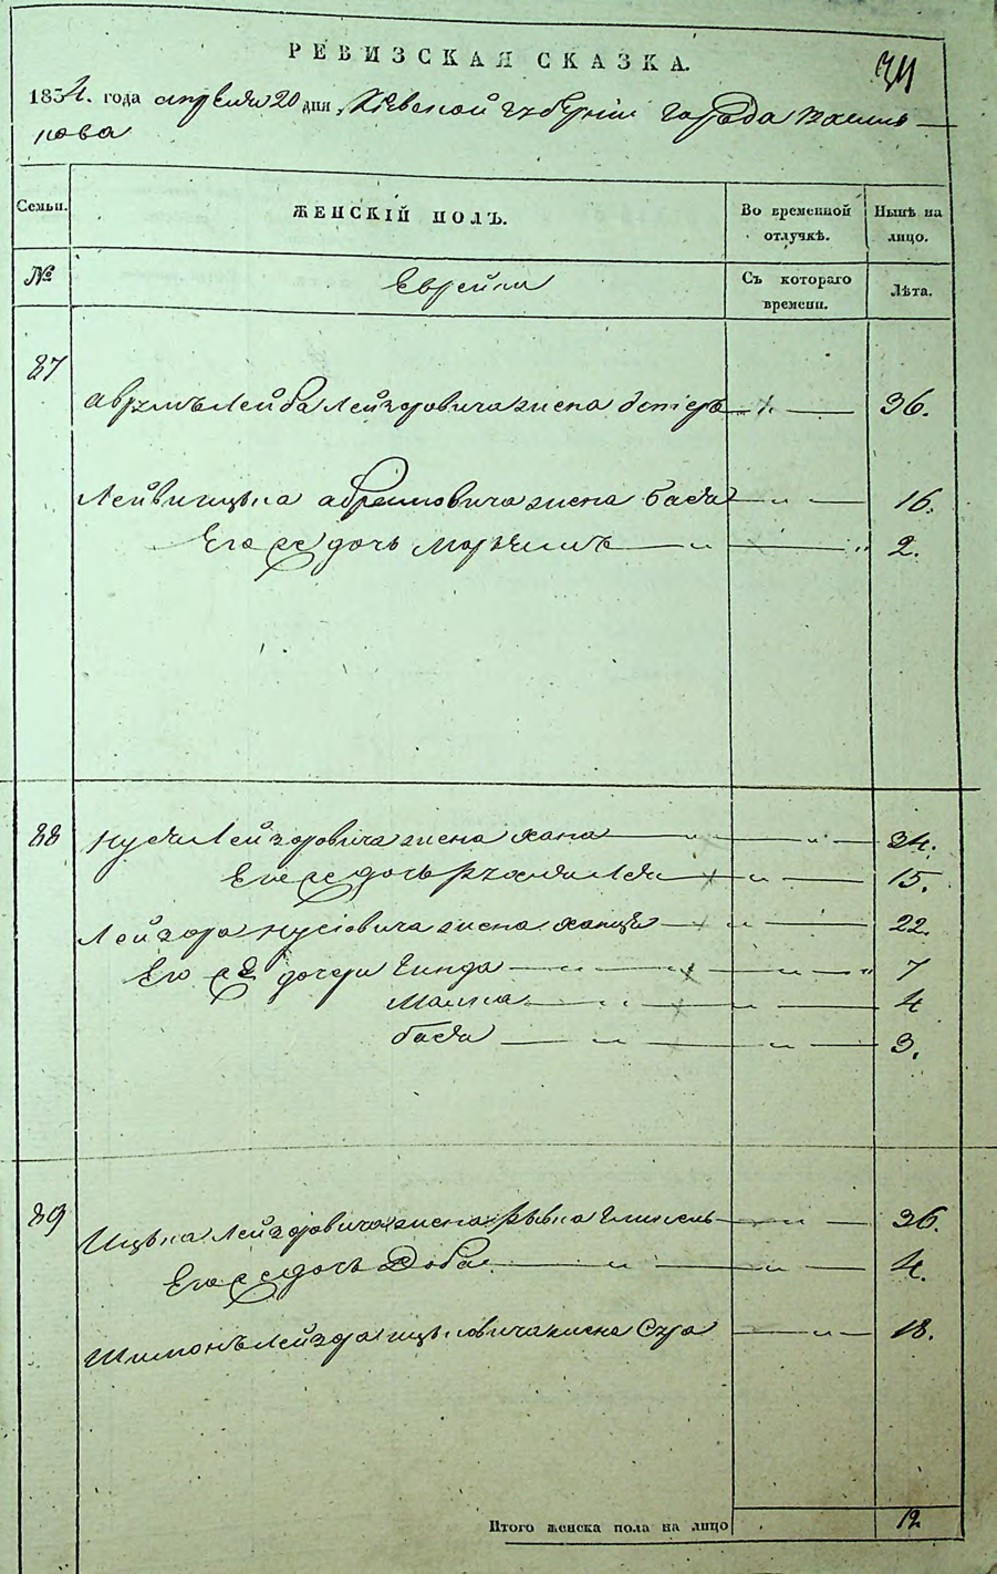 34
РЕВИЗСКАЯ СКАЗКА.
1834. года апреля 20 дня, Киевской губернии города Василь-
кова
Семьи. ЖЕНСКІЙ ПОЛЪ. Во временной отлучкѣ. Нынѣ на лицо.
№ Еврейки Съ котораго времени. Лѣта.
87
Аврумъ Лейба Лейзоровича жена Естеръ 36.
Лейви Ицька Абрамовича жена Бася 16.
Его се дочь 2.
88 Нусия Лейзоровича жена Хана 34.
Его се дочь Рухля Лея 15.
Лейзора Нусіовича жена Ханця 22.
Его се дочери Гинда 7
Малка 4
Бася 3.
89 Ицька Лейзоровича жена Рывка 36.
Его се дочь Доба 4.
Шимонъ Лейзора Ицьковича жена Сура 18.
Итого женска пола на лицо 12